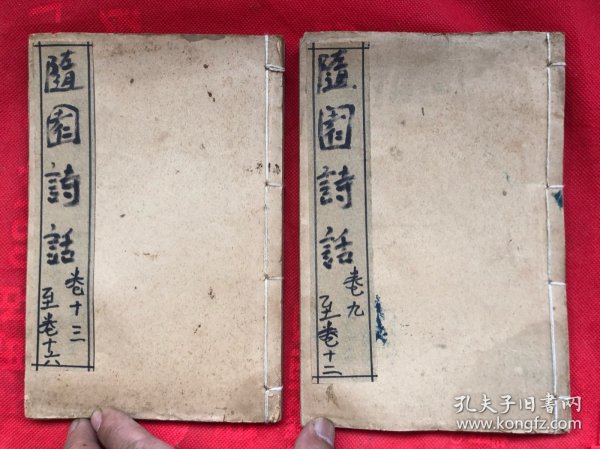 隨園詩話
卷十三
至卷十六
隨園詩話
卷九
至卷十二
孔夫子旧书网
www.kongfz.com